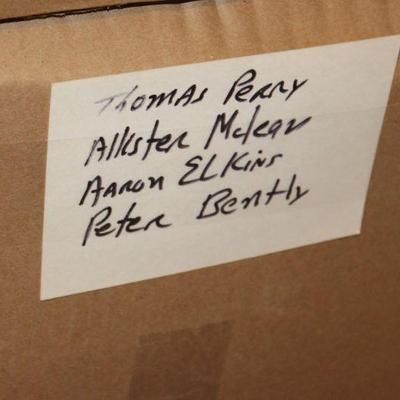 Thomas Perry
Allister Mclean
Aaron Elkins
Peter Bently